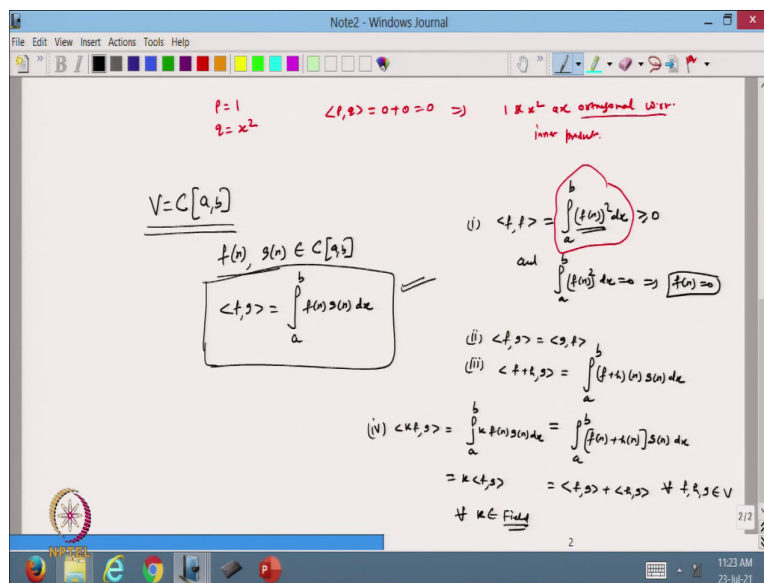 Note2 - Windows Journal
File Edit View Insert Actions Tools Help
B I
P = 1
q = x²
<P,q> = 0+0 = 0 => 1 & x² are orthogonal w.r.t.
inner product.
V = C[a,b]
f(x), g(x) ∈ C[a,b]
<f,g> = ∫_a^b f(x) g(x) dx
(i) <f,f> = ∫_a^b (f(x))² dx ≥ 0
and ∫_a^b (f(x))² dx = 0 => f(x) = 0
(ii) <f,g> = <g,f>
(iii) <f+h,g> = ∫_a^b (f+h)(x) g(x) dx
= ∫_a^b [f(x)+h(x)] g(x) dx
= <f,g> + <h,g> ∀ f,h,g ∈ V
(iv) <kf,g> = ∫_a^b k f(x) g(x) dx
= k<f,g>
∀ k ∈ Field
NPTEL
2
2/2
11:23 AM
23-Jul-21